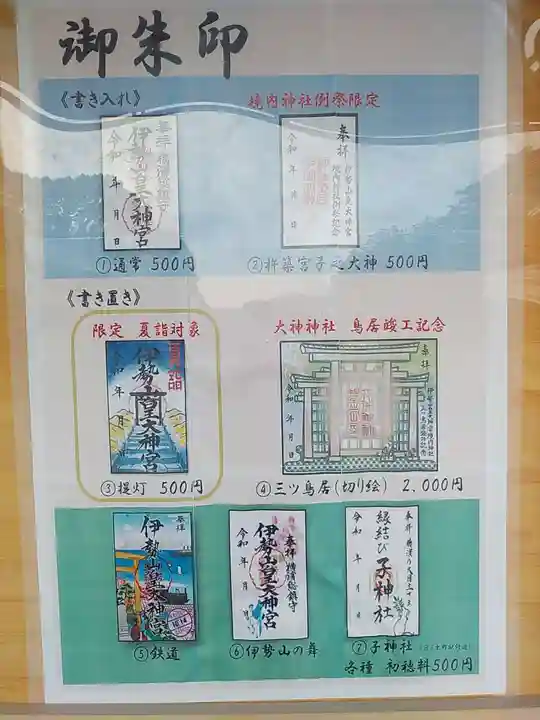 御朱印
《書き入れ》
境内神社例祭限定
奉拝
伊勢山皇大神宮
令和 年 月 日
奉拝
伊勢山皇大神宮
令和 年 月 日
①通常 500円
②杵築宮子之大神 500円
《書き置き》
限定 夏詣対象
大神神社 鳥居竣工記念
夏詣
伊勢山皇大神宮
令和 年 月 日
奉拝
令和 年 月 日
③提灯 500円
④三ツ鳥居(切り絵) 2,000円
奉拝
伊勢山皇大神宮
奉拝 横濱総鎮守
伊勢山皇大神宮
令和 年 月
奉拝
縁結び 子神社
令和 年 月 日
⑤鉄道
⑥伊勢山の舞
⑦子神社
各種 初穂料500円